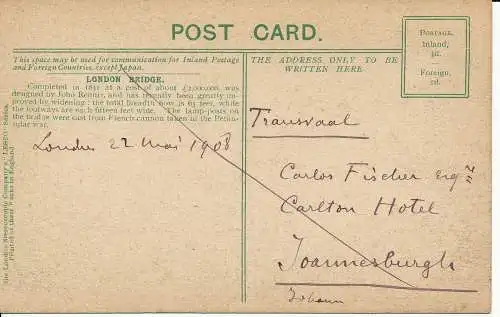 POST CARD.
Postage.
Inland,
½d.
Foreign,
1d.
This space may be used for communication for Inland Postage
and Foreign Countries, except Japan.
THE ADDRESS ONLY TO BE
WRITTEN HERE.
LONDON BRIDGE.
Completed in 1831 at a cost of about £2,000,000, was
designed by John Rennie, and has recently been greatly im-
proved by widening: the total breadth now is 65 feet, while
the footways are each fifteen feet wide. The lamp-posts on
the bridge were cast from French cannon taken in the Penin-
sular war.
London 22 Mai 1908
Transvaal
Carlos Fischer Esq
Carlton Hotel
Joannesburgh
Johann
The London Stereoscopic Company's "LESCO" Series.
Printed at their Works in England